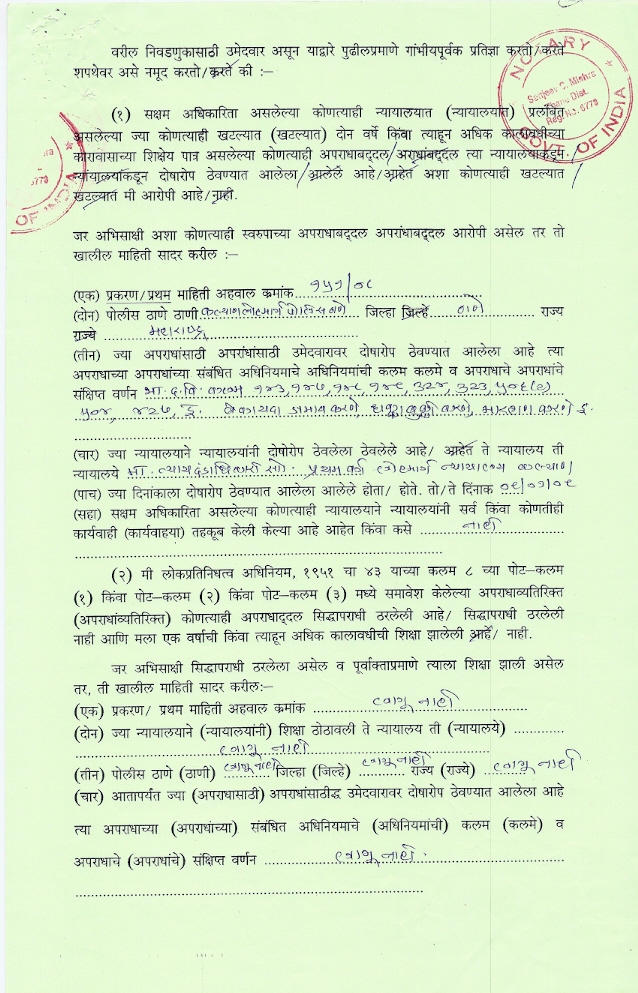 वरील निवडणुकासाठी उमेदवार असून याद्वारे पुढीलप्रमाणे गांभीयपूर्वक प्रतिज्ञा करतो/करते
शपथेवर असे नमूद करतो/करते की :–
NOTARY
Sanjeev C. Mishra
Thane Dist.
Reg. No. 6778
GOVT. OF INDIA
(१) सक्षम अधिकारिता असलेल्या कोणत्याही न्यायालयात (न्यायालयात) प्रलंबित
असलेल्या ज्या कोणत्याही खटल्यात (खटल्यात) दोन वर्षे किंवा त्याहून अधिक कालावधीच्या
कारावासाच्या शिक्षेय पात्र असलेल्या कोणत्याही अपराधाबद्दल/अपराधांबद्दल त्या न्यायालयाकडून/
न्यायालयांकडून दोषारोप ठेवण्यात आलेला/आलेले आहे/आहेत अशा कोणत्याही खटल्यात/
खटल्यात मी आरोपी आहे/नाही.
6778
OF INDIA
जर अभिसाक्षी अशा कोणत्याही स्वरुपाच्या अपराधाबद्दल अपरांधाबद्दल आरोपी असेल तर तो
खालील माहिती सादर करील :–
(एक) प्रकरण/प्रथम माहिती अहवाल क्रमांक १५१/०८
(दोन) पोलीस ठाणे ठाणी कल्याण लोहमार्ग पोलिस ठाणे जिल्हा जिल्हे ठाणे राज्य
राज्ये महाराष्ट्र
(तीन) ज्या अपराधांसाठी अपरांधांसाठी उमेदवारावर दोषारोप ठेवण्यात आलेला आहे त्या
अपराधाच्या अपराधांच्या संबंधित अधिनियमाचे अधिनियमांची कलम कलमे व अपराधाचे अपराधांचे
संक्षिप्त वर्णन भा. द. वि. कलम १४३, १४७, १४८, १४९, ३२४, ३२३, ५०६(२)
५०४, ४२७, इ. बेकायदा जमाव करणे, धक्काबुक्की करणे, मारहाण करणे इ.
(चार) ज्या न्यायालयाने न्यायालयांनी दोषोरोप ठेवलेला ठेवलेले आहे/ आहेत ते न्यायालय ती
न्यायालये मा. न्यायदंडाधिकारी सो. प्रथम वर्ग लोहमार्ग न्यायालय कल्याण
(पाच) ज्या दिनांकाला दोषारोप ठेवण्यात आलेला आलेले होता/ होते. तो/ ते दिनांक
(सहा) सक्षम अधिकारिता असलेल्या कोणत्याही न्यायालयाने न्यायालयांनी सर्व किंवा कोणतीही
कार्यवाही (कार्यवाहया) तहकूब केली केल्या आहे आहेत किंवा कसे नाही
(२) मी लोकप्रतिनिधत्व अधिनियम, १९५१ चा ४३ याच्या कलम ८ च्या पोट–कलम
(१) किंवा पोट–कलम (२) किंवा पोट–कलम (३) मध्ये समावेश केलेल्या अपराधाव्यतिरिक्त
(अपराधांव्यतिरिक्त) कोणत्याही अपराधाद्दल सिद्धापराधी ठरलेली आहे/ सिद्धापराधी ठरलेली
नाही आणि मला एक वर्षाची किंवा त्याहून अधिक कालावधीची शिक्षा झालेली आहे/ नाही.
जर अभिसाक्षी सिद्धापराधी ठरलेला असेल व पूर्वाक्ताप्रमाणे त्याला शिक्षा झाली असेल
तर, ती खालील माहिती सादर करील:–
(एक) प्रकरण/ प्रथम माहिती अहवाल क्रमांक लागू नाही
(दोन) ज्या न्यायालयाने (न्यायालयांनी) शिक्षा ठोठावली ते न्यायालय ती (न्यायालये)
लागू नाही
(तीन) पोलीस ठाणे (ठाणी) लागू नाही जिल्हा (जिल्हे) लागू नाही राज्य (राज्ये) लागू नाही
(चार) आतापर्यंत ज्या (अपराधासाठी) अपराधांसाठीद्ध उमेदवारावर दोषारोप ठेवण्यात आलेला आहे
त्या अपराधाच्या (अपराधांच्या) संबंधित अधिनियमाचे (अधिनियमांची) कलम (कलमे) व
अपराधाचे (अपराधांचे) संक्षिप्त वर्णन लागू नाही.